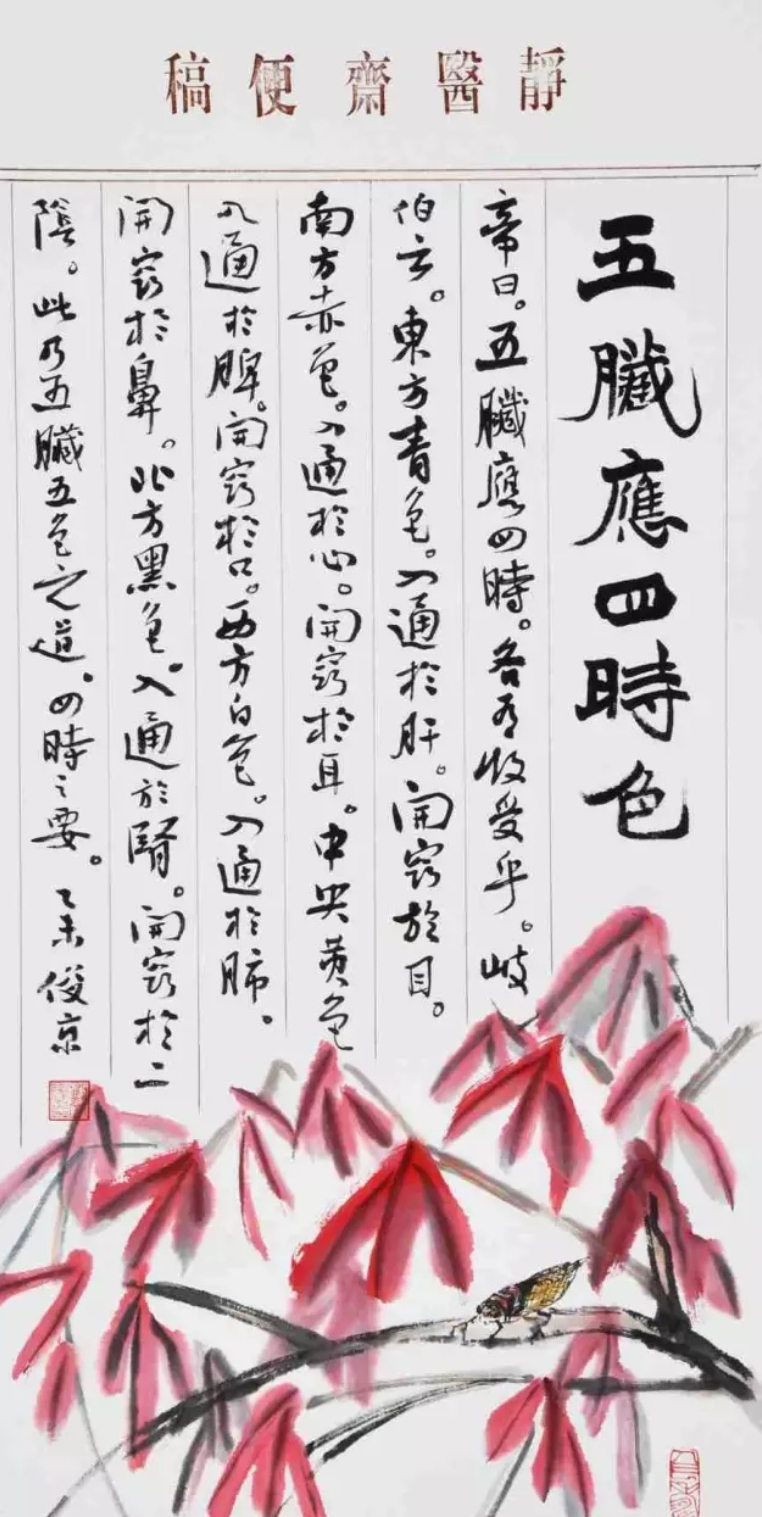 靜醫齋便稿
五臟應四時色
帝曰。五臟應四時。各有收受乎。岐
伯云。東方青色。入通於肝。開竅於目。
南方赤色。入通於心。開竅於耳。中央黃色
入通於脾。開竅於口。西方白色。入通於肺。
開竅於鼻。北方黑色。入通於腎。開竅於二
陰。此乃五臟五色之道。四時之要。乙未俊京